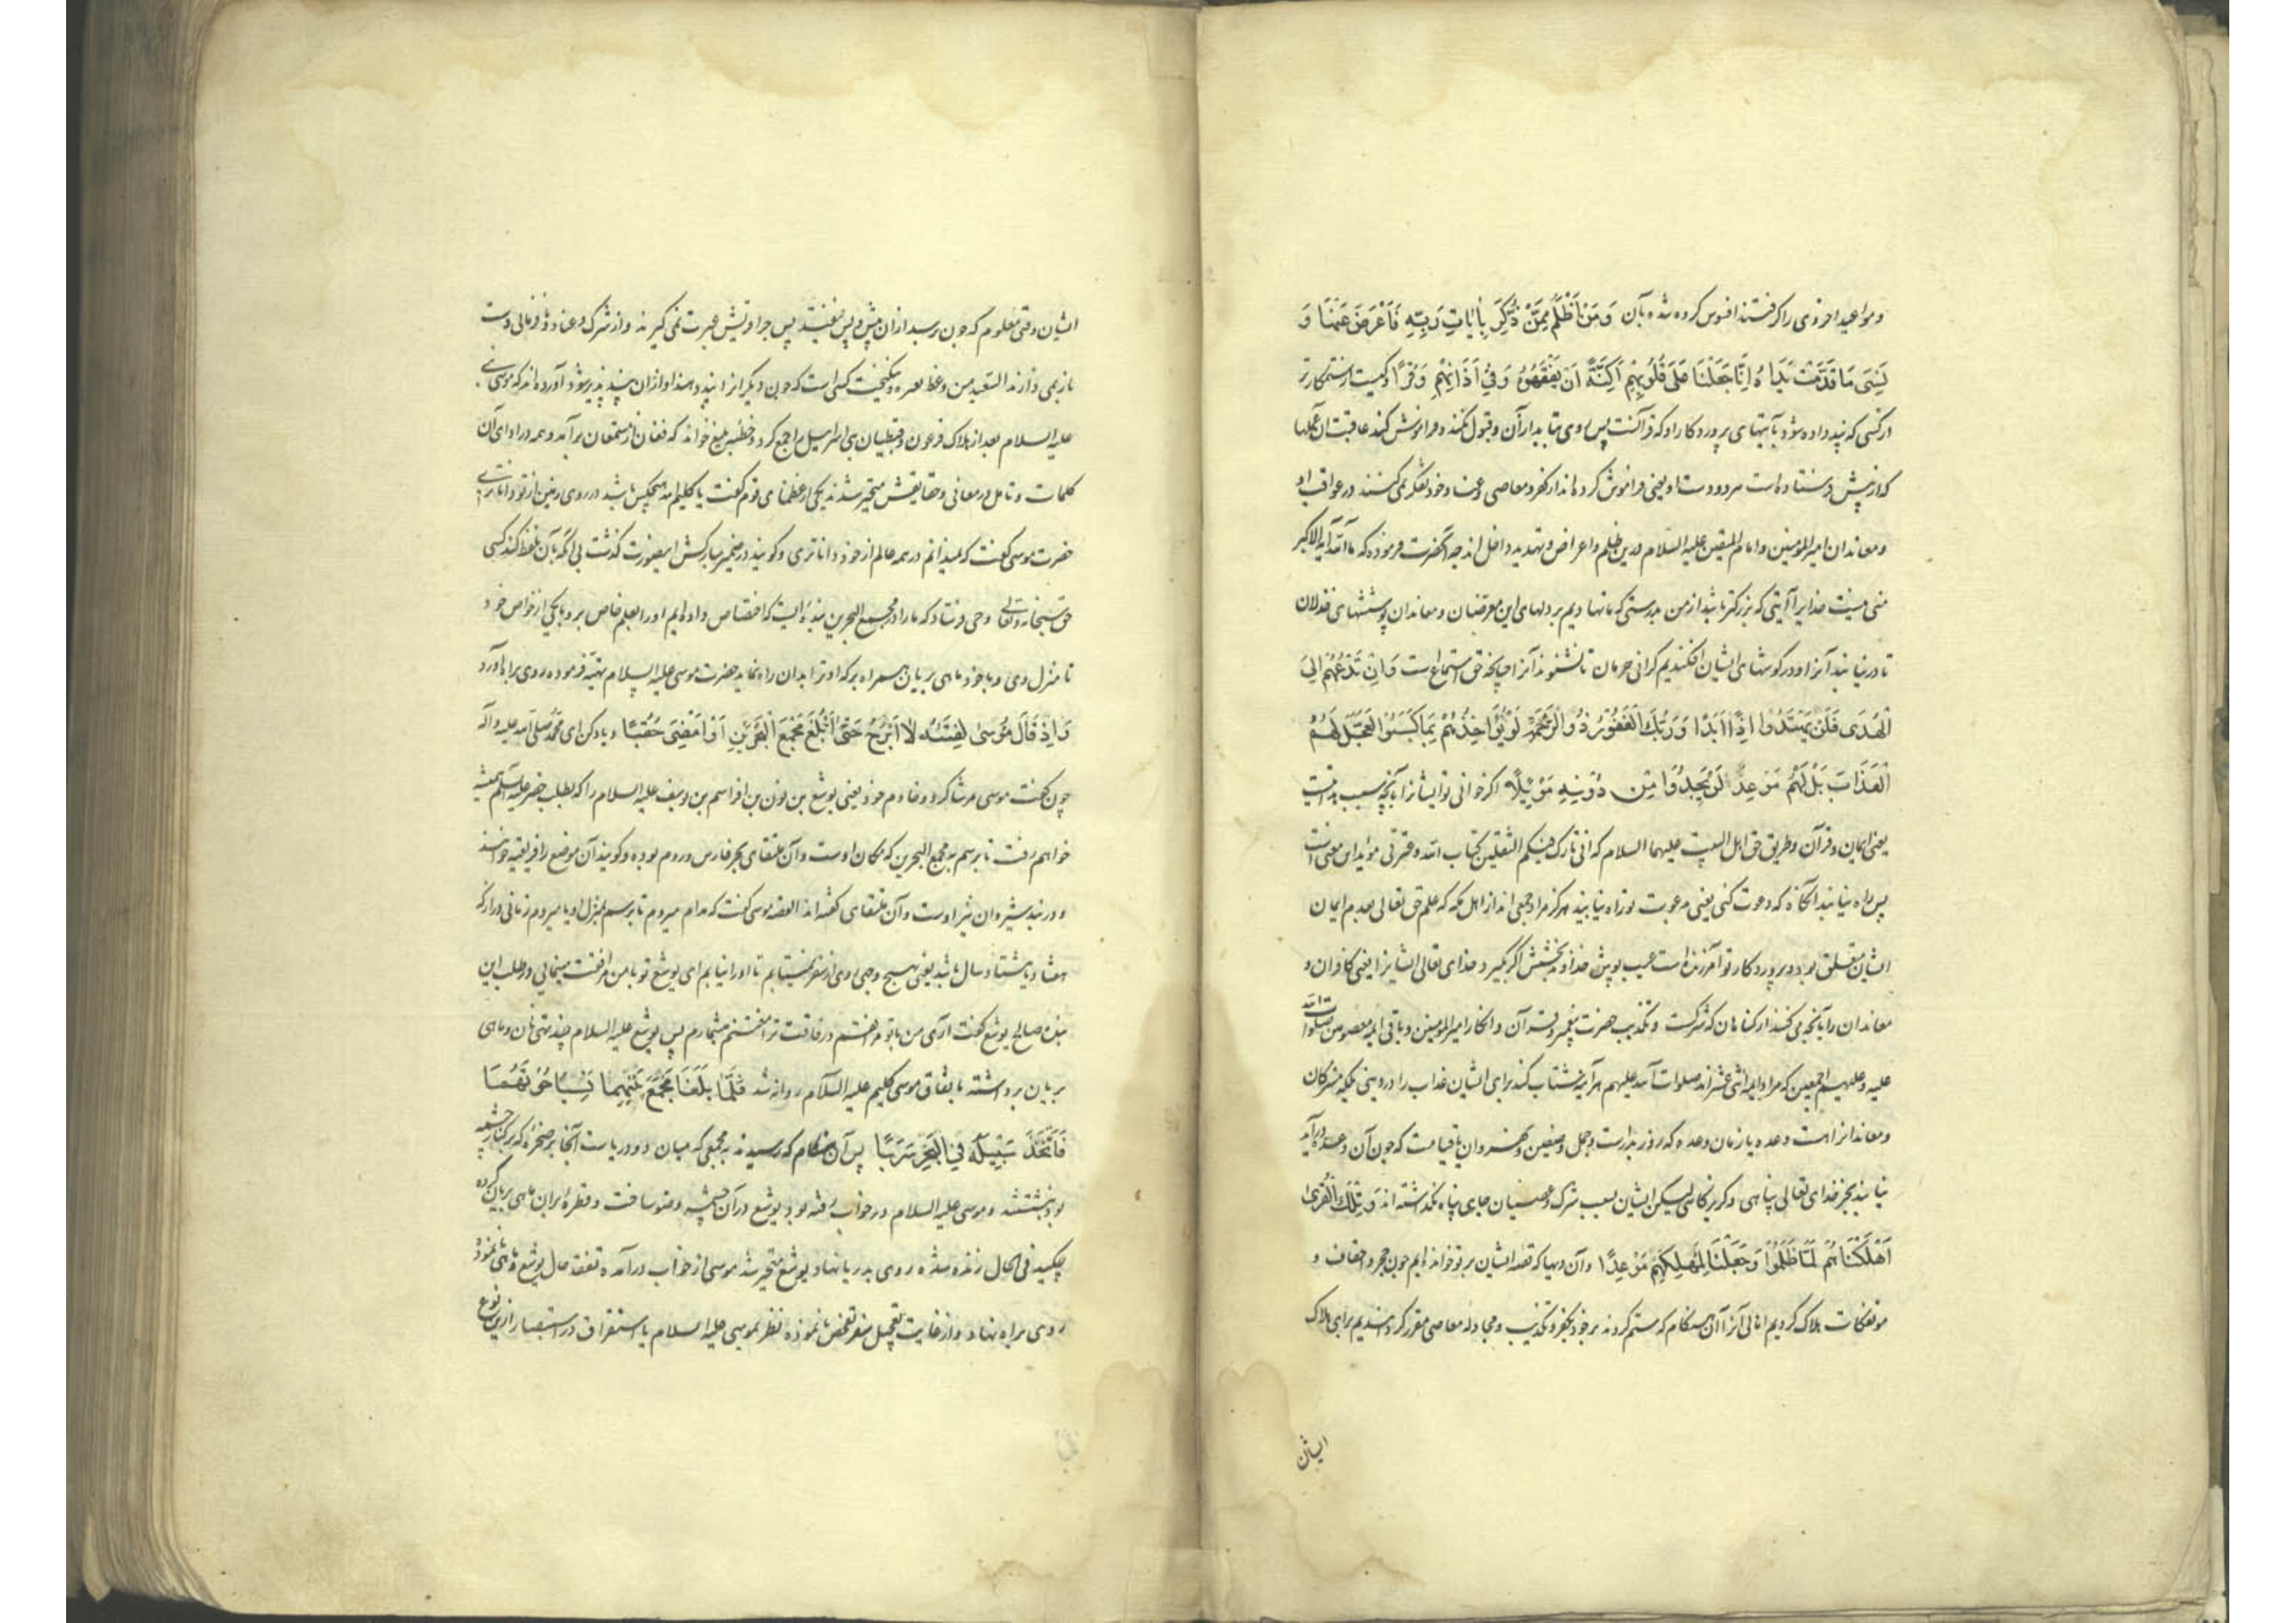 و مواعید اخروی را گرفتند افسوس کرده شده بآن وَمَنْ اَظْلَمُ مِمَّنْ ذُكِّرَ بِاٰیَاتِ رَبِّهِ فَاَعْرَضَ عَنْهَا وَ
نَسِیَ مَا قَدَّمَتْ یَدَاهُ اِنَّا جَعَلْنَا عَلَى قُلُوبِهِمْ اَكِنَّةً اَنْ یَفْقَهُوهُ وَفِی اٰذَانِهِمْ وَقْرًا و کیست ستمکارتر
از کسی که پند داده شود بآیتهای پروردکار او که قرآنست پس روی بتابد از آن و قبول نکند و فراموش کند عاقبت آن عملها
که از پیش فرستاده است هر دو دست او یعنی فراموش کرده اند از کفر و معاصی و عناد خود تفکر نمی کنند در عواقب او
و معاندان امیر المؤمنین و امام المتقین علیه السلام درین ظلم و اعراض و تهدید داخل اند چه آنحضرت فرموده که ما لله آیة اکبر
منی نیست خدایرا آیتی که بزرکتر باشد از من بدرستی که ما نهادیم بر دلهای این معرضان و معاندان پوششهای خذلان
تا در نیابند آنرا و در کوشهای ایشان افکندیم کرانی حرمان تا نشنوند آنرا چنانچه حق استماع است وَاِنْ تَدْعُهُمْ اِلَى
الْهُدَى فَلَنْ یَهْتَدُوا اِذًا اَبَدًا وَرَبُّكَ الْغَفُورُ ذُو الرَّحْمَةِ لَوْ یُؤَاخِذُهُمْ بِمَا كَسَبُوا لَعَجَّلَ لَهُمُ
الْعَذَابَ بَلْ لَهُمْ مَوْعِدٌ لَنْ یَجِدُوا مِنْ دُونِهِ مَوْئِلًا اکر خوانی تو ایشانرا بآنچه سبب هدایت
یعنی ایمان و قرآن و طریق حق اهل البیت علیهما السلام که انی تارک فیکم الثقلین کتاب الله و عترتی مؤید این معنی است
پس راه نیابند آنکاه که دعوت کنی یعنی بدعوت تو راه نیابند هرکز مراد جمعی اند از اهل مکه که علم حق تعالی بعدم ایمان
ایشان متعلق بود و پروردکار تو آمرزنده است عیب پوش خداوند بخشش اکر بکیرد خدای تعالی ایشانرا یعنی کافران و
معاندان را بآنچه می کنند از کناهان که شرکست و تکذیب حضرت پیغمبر و قرآن و انکار امیر المؤمنین و باقی ائمه معصومین صلوات الله
علیه و علیهم اجمعین که مراد ایمه اثنی عشر اند صلوات الله علیهم هر آینه شتاب کند برای ایشان عذاب را در دنیی بلکه مشرکان
و معاندانرا است وعده یا زمان وعده که روز بدر است و جمل و صفین و نهروان یا قیامت که چون آن وعده در آید
نیابند بجز خدای تعالی پناهی و کریزکاهی لیکن ایشان بسبب شرک و عصیان جای پناه نکذاشته اند وَتِلْكَ الْقُرٰى
اَهْلَكْنَاهُمْ لَمَّا ظَلَمُوا وَجَعَلْنَا لِمَهْلِكِهِمْ مَوْعِدًا و آن دیهها که قصه ایشان بر تو خوانده ایم چون حجر و احقاف و
موتفکات هلاک کردیم اهالی آنرا آن هنکام که ستم کردند بر خود بکفر و تکذیب و مجادله معاصی مقرر کردانیدیم برای هلاک
ایشان
ایشان وقتی معلوم که چون برسد از آن پیش و پس نیفتند پس چرا قریش عبرت نمی کیرند و از شرک و عناد و نافرمانی دست
باز نمی دارند السعید من وعظ بغیره نیکبخت کسی است که چون دیکرانرا پند دهند او از آن پند پذیر شود آورده اند که موسی
علیه السلام بعد از هلاک فرعون و قبطیان بنی اسرائیل را جمع کرد و خطبه بلیغ خواند که فغان از مستمعان برآمد و همه در ادای آن
کلمات و تامل در معانی و حقایقش متحیر شدند یکی از عظمای قوم کفت یا کلیم الله هیچکس باشد در روی زمین از تو داناتر
حضرت موسی کفت که نمیدانم در همه عالم از خود داناتری و کویند در ضمیر مبارکش این صورت کذشت بی آنکه بآن تلفظ کند کسی
حق سبحانه و تعالی وحی فرستاد که ما را در مجمع البحرین بنده ایست که اختصاص داده ایم او را بعلم خاص برو با یکی از خواص خود
تا منزل وی و با خود ماهی بریان همراه بر که او ترا بدان راه نماید حضرت موسی علیه السلام تهیه فرموده روی براه آورد
وَاِذْ قَالَ مُوسٰى لِفَتٰىهُ لَا اَبْرَحُ حَتّٰى اَبْلُغَ مَجْمَعَ الْبَحْرَیْنِ اَوْ اَمْضِیَ حُقُبًا و یاد کن ای محمد صلی الله علیه و آله
چون کفت موسی مر شاکرد و خادم خود یعنی یوشع بن نون بن افراسیم بن یوسف علیه السلام را که بطلب خضر علیه السلام همیشه
خواهم رفت تا برسم به مجمع البحرین که مکان اوست و آن ملتقای بحر فارس و روم بوده و کویند آن موضع را افریقیه خوانند
و دربند شیروان نیز اوست و آن ملتقای کفته اند القصه موسی کفت که مدام میروم تا برسم بمنزل او یا میروم زمانی دراز که
هفتاد یا هشتاد سال باشد یعنی بهیچ وجهی روی از سفر نمی تابم تا او را نیابم ای یوشع تو با من مرافقت مینمایی در طلب این
بنده صالح یوشع کفت آری من با تو مرافقتم و رفاقت ترا مغتنم میشمارم پس یوشع علیه السلام چند تهی نان و ماهی
بریان برداشته باتفاق موسی کلیم علیه السلام روانه شد فَلَمَّا بَلَغَا مَجْمَعَ بَیْنِهِمَا نَسِیَا حُوتَهُمَا
فَاتَّخَذَ سَبِیلَهُ فِی الْبَحْرِ سَرَبًا پس آن هنکام که رسیدند به مجمعی که میان دو دریاست آنجا بر صخره که بر کنار چشمه
بود بنشستند و موسی علیه السلام در خواب رفته بود یوشع در آن چشمه وضو ساخت و قطره بر آن ماهی بریان کرده
چکید فی الحال زنده شده روی بدریا نهاد یوشع متحیر شد موسی از خواب درآمده تفقد حال یوشع و ماهی ننموده
روی براه نهاد و از غایت تعجیل سفر تفحص نانموده نظر بموسی علیه السلام یا استغراق در استبصار ازین نوع